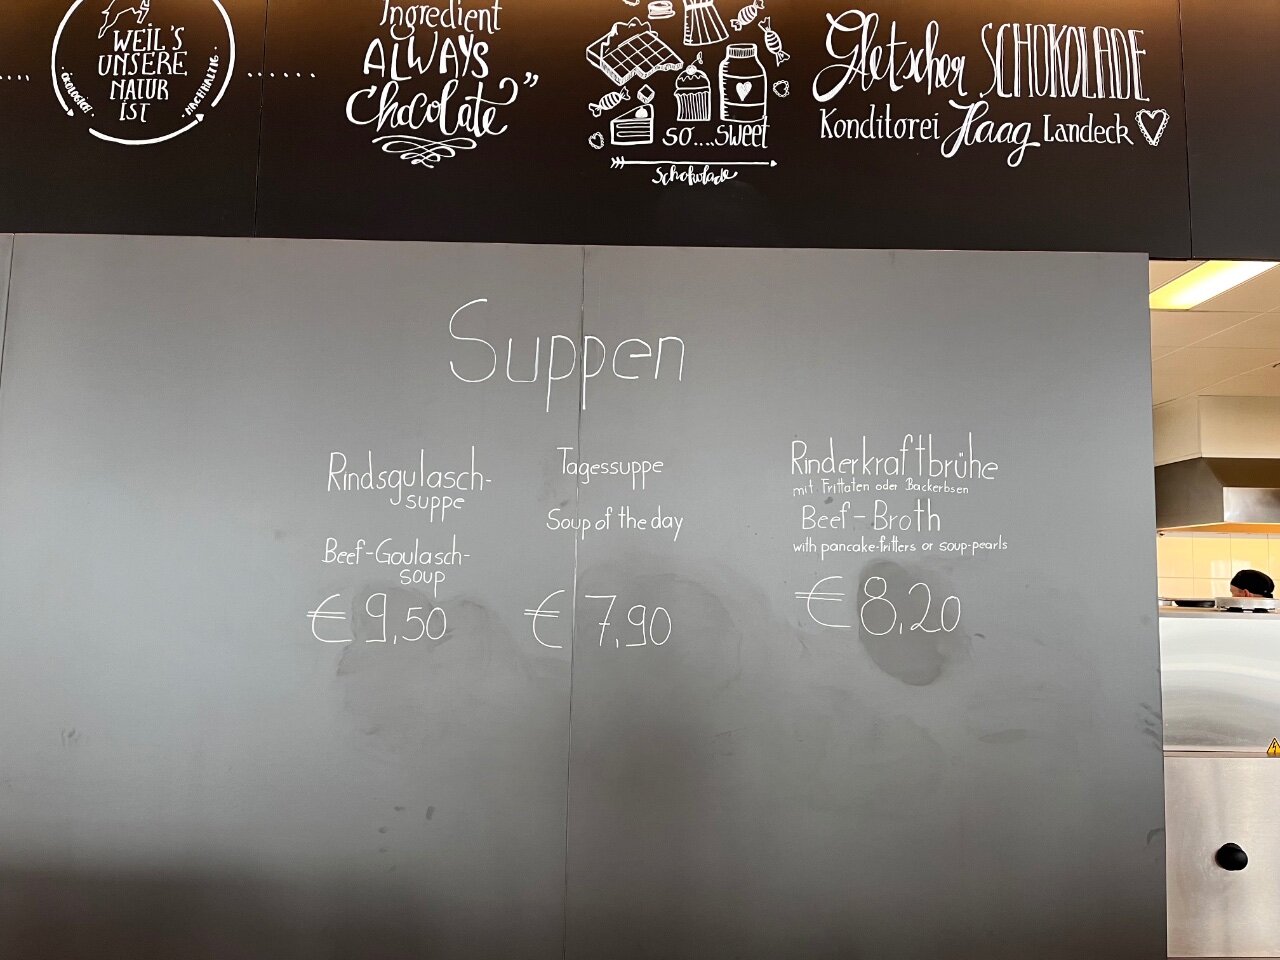 WEIL'S
UNSERE
NATUR
IST
ÖKOLOGISCH.
NACHHALTIG.
Ingredient
ALWAYS
Chocolate"
SO....SWEET
Schokolade
Gletscher SCHOKOLADE
Konditorei Haag Landeck
Suppen
Rindsgulasch-
suppe
Beef-Goulasch-
soup
€ 9,50
Tagessuppe
Soup of the day
€ 7,90
Rinderkraftbrühe
mit Frittaten oder Backerbsen
Beef-Broth
with pancake-fritters or soup-pearls
€ 8,20